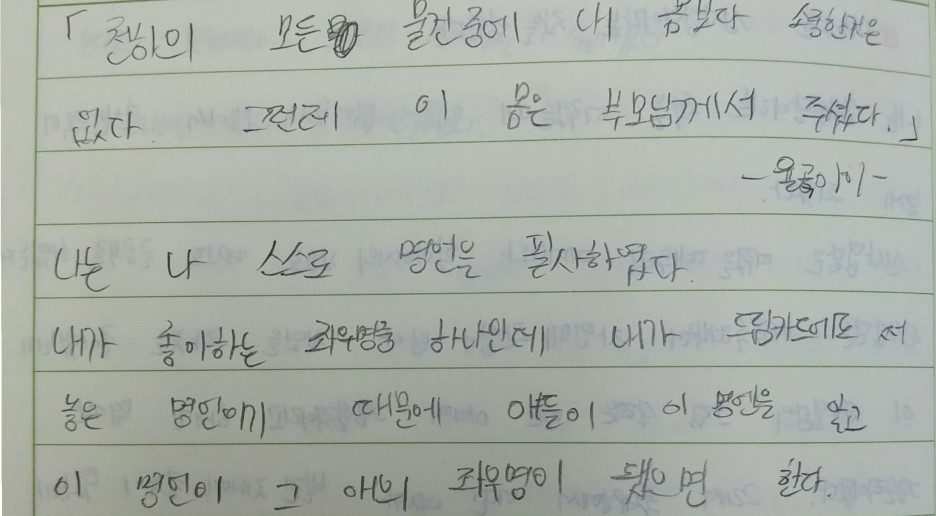 「천하의 모든 물건중에 내 몸보다 소중한것은
없다. 그런데 이 몸은 부모님께서 주셨다.」
-율곡이이-
나는 나 스스로 명언을 필사하였다.
내가 좋아하는 좌우명중 하나인데 내가 드림카드에도 저
놓은 명언이기 때문에 애들이 이 명언을 알고
이 명언이 그 아이의 좌우명이 됐으면 한다.